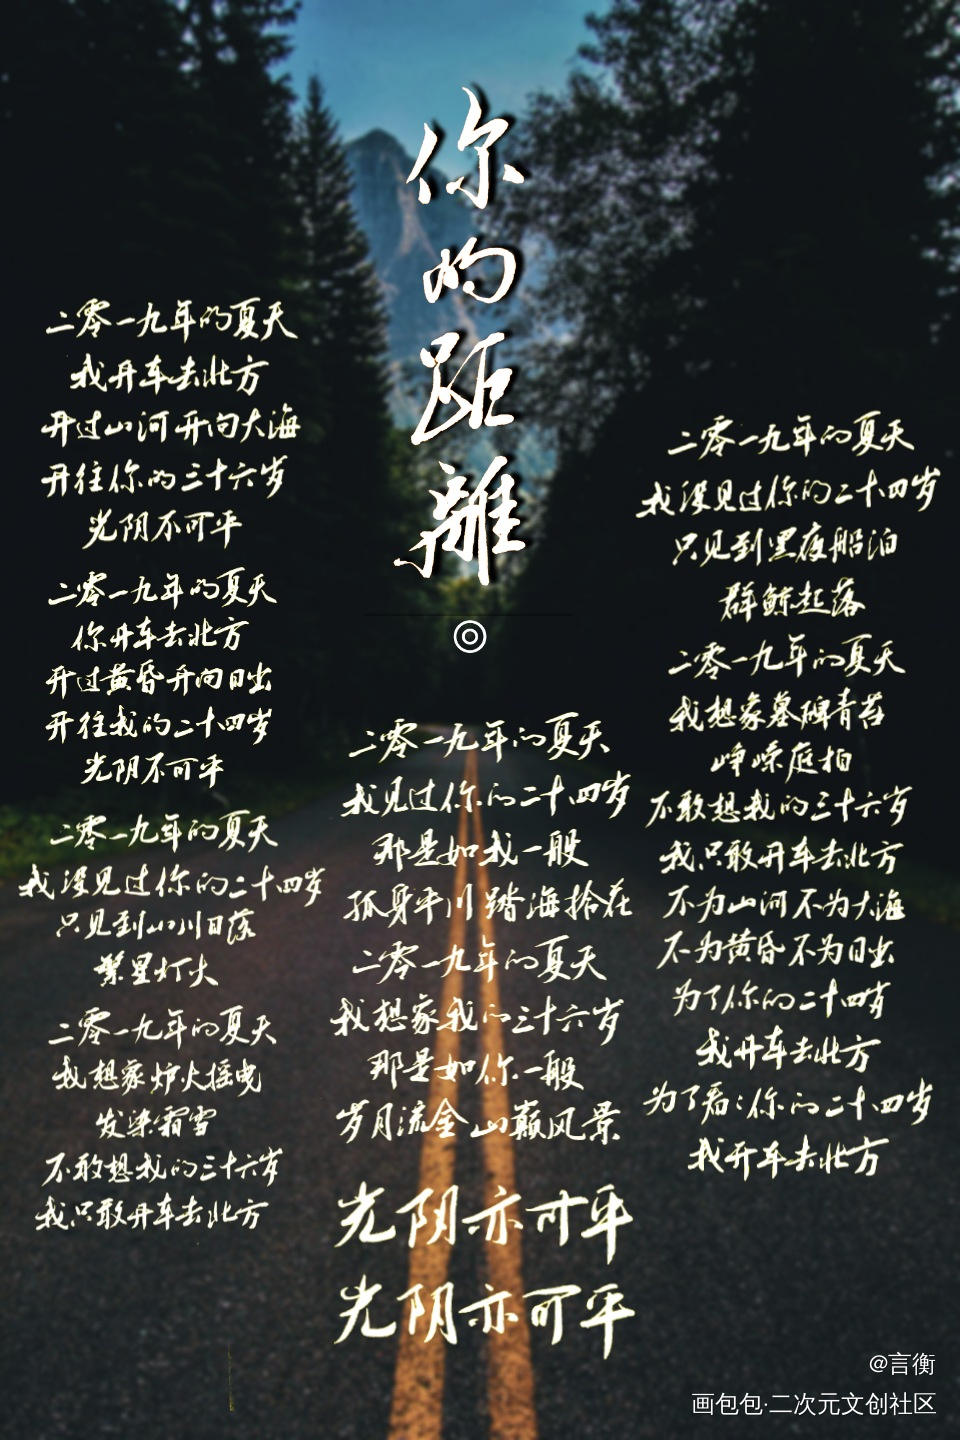 你的距離
二零一九年的夏天
我开车去北方
开过山河开向大海
开往你的三十六岁
光阴不可平
二零一九年的夏天
你开车去北方
开过黄昏开向日出
开往我的二十四岁
光阴不可平
二零一九年的夏天
我没见过你的二十四岁
只见到山川日落
繁星灯火
二零一九年的夏天
我想象炉火摇曳
发染霜雪
不敢想我的三十六岁
我只敢开车去北方
二零一九年的夏天
我见过你的二十四岁
那是如我一般
孤身平川踏海拾花
二零一九年的夏天
我想象我的三十六岁
那是如你一般
岁月流金山巅风景
光阴亦可平
光阴亦可平
二零一九年的夏天
我没见过你的二十四岁
只见到黑夜船泊
群鲸起落
二零一九年的夏天
我想象墓碑青苔
峥嵘庭柏
不敢想我的三十六岁
我只敢开车去北方
不为山河不为大海
不为黄昏不为日出
为了你的二十四岁
我开车去北方
为了看看你的二十四岁
我开车去北方
@言衡
画包包·二次元文创社区